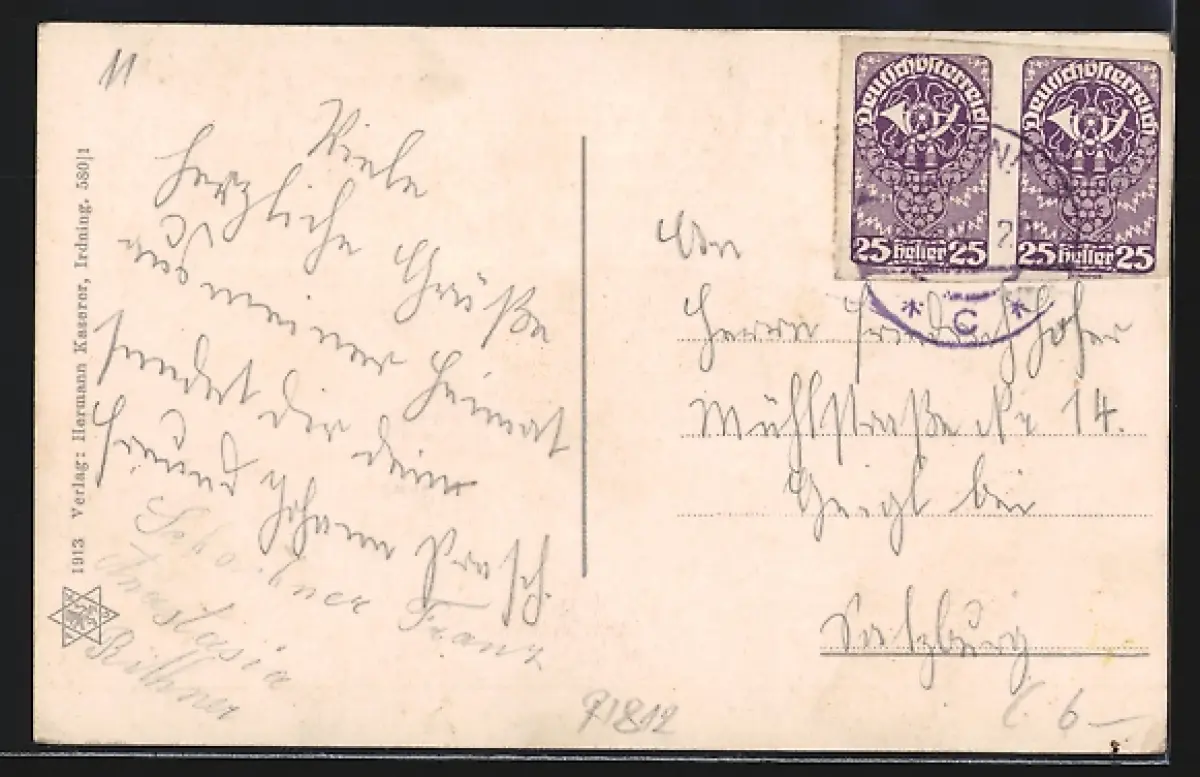 11
Viele
herzliche Grüße
aus meiner Heimat
sendet dir dein
Freund Johann
Franz
Anastasia
1913 Verlag: Hermann Kaserer, Irdning. 580|1
Deutschösterreich
25 Heller 25
Deutschösterreich
25 Heller 25
* C *
Herrn Friedrich
Mühlstraße Nr 14.
bei
Salzburg
6 —
91812